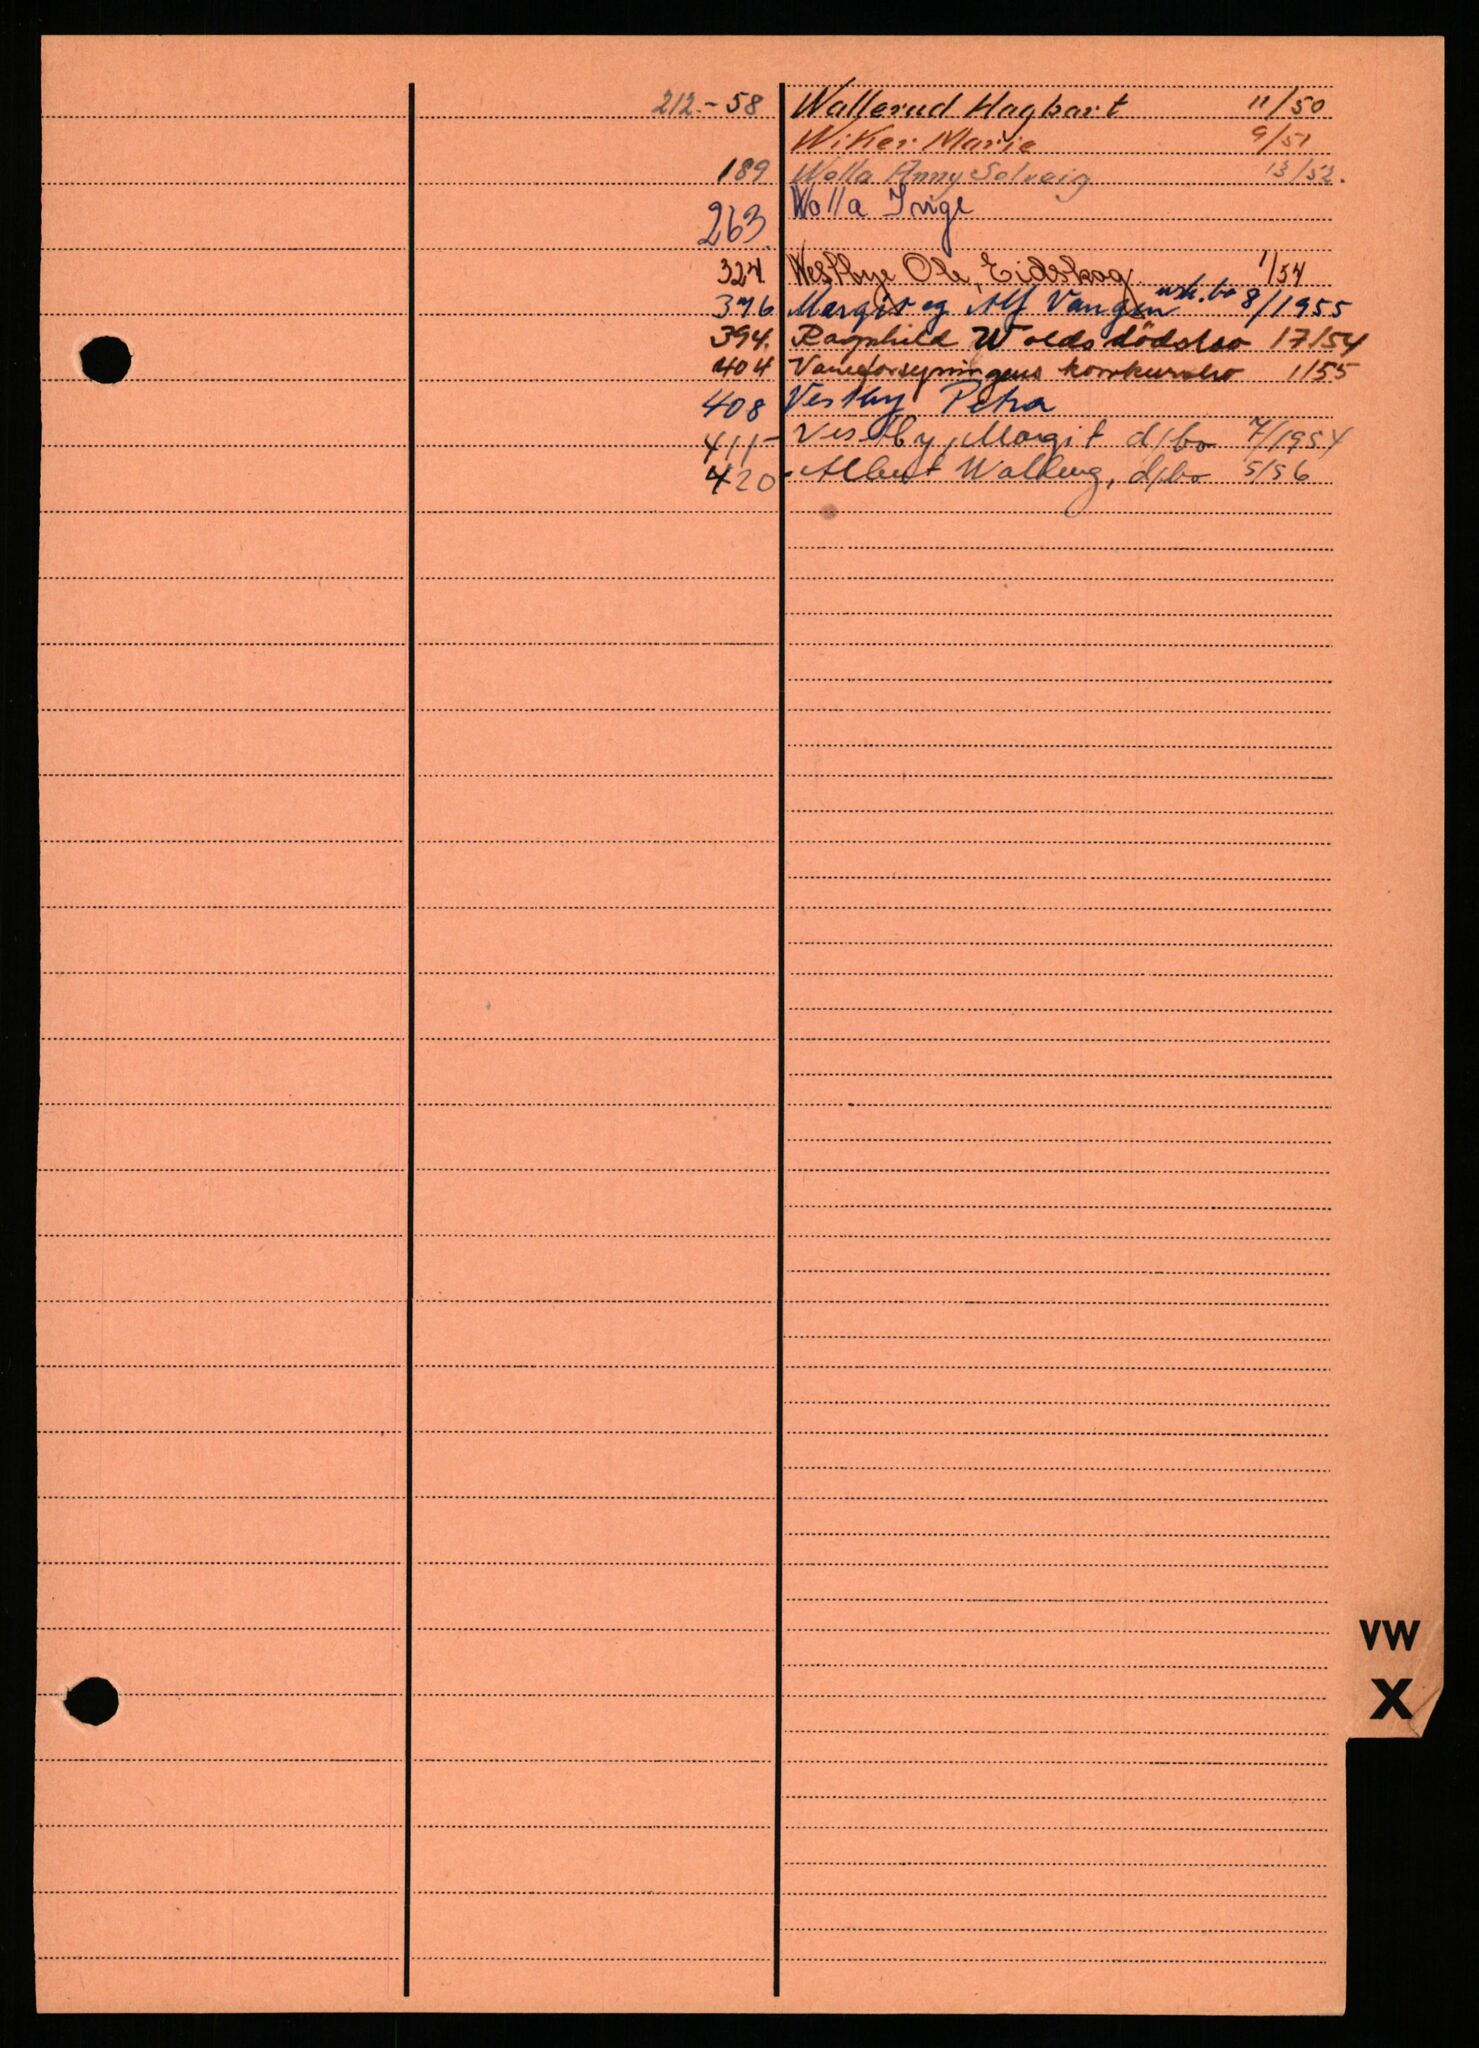 212.-58 Wallerud Hagbart 11/50
Wiker Marie 9/51
189 Wolla Anny Solveig 13/52.
263. Wolla Inge
324 Westbye Ole, Eidskog. 1/54
376 Margit og Alf Vangen 8/1955
394. Ragnhild Wolds dödsbo 17/54
404 Vareforsyningens konkursbo 1/55
408 Vestby Petra
411- Vestby, Margit d/bo 7/1954
420 - Albert Walberg, d/bo 5/56
VW
X